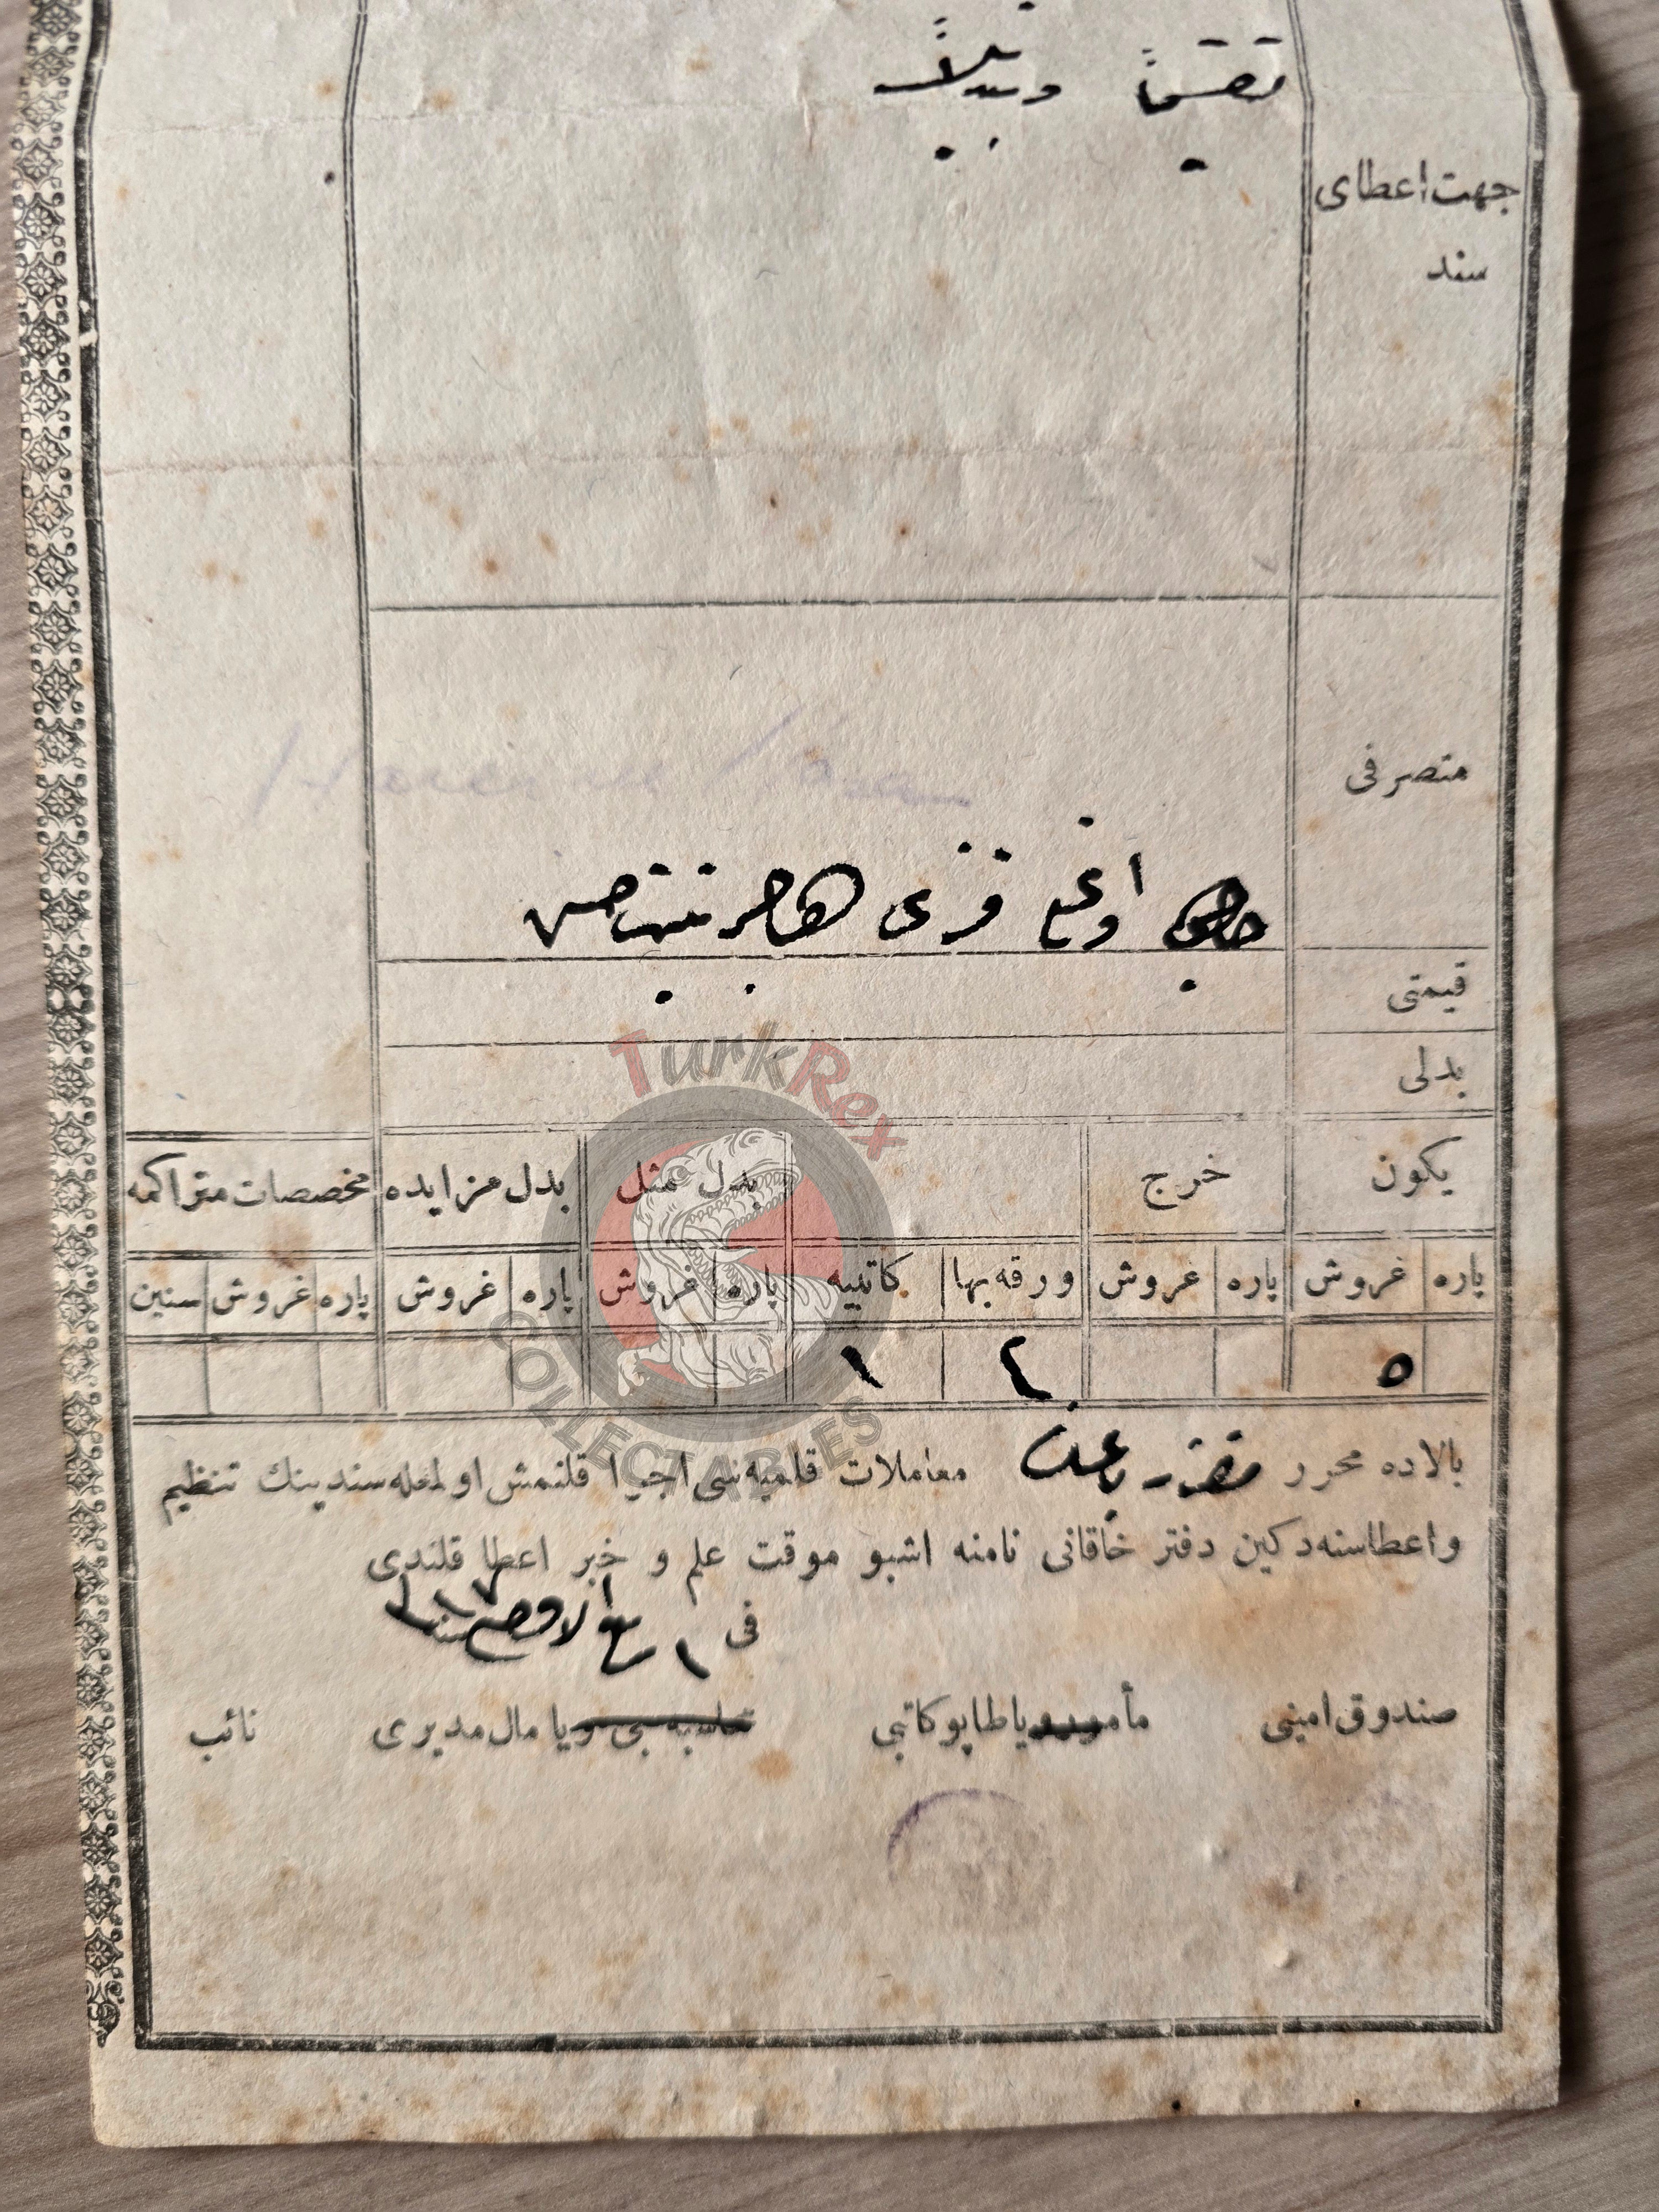 تقسیماً وتبدیلاً
جهت اعطای
سند
متصرفی
اوغلی قزی هاجر بنت حسن
قیمتی
بدلی
یکون خرج بدل مثل بدل مزایده مخصصات متراکمه
پاره غروش پاره غروش ورقه بها کاتبیه پاره غروش پاره غروش پاره غروش سنین
٥ ١
بالاده محرر معاملات قلمیه‌سی اجرا قلنمش اولمغله سندینك تنظیم
واعطاسنه دکین دفتر خاقانی نامنه اشبو موقت علم و خبر اعطا قلندی
فی ١
صندوق امینی مأمور ویا طاپو کاتبی محاسبه‌جی ویا مال مدیری نائب
TurkRex
COLLECTABLES